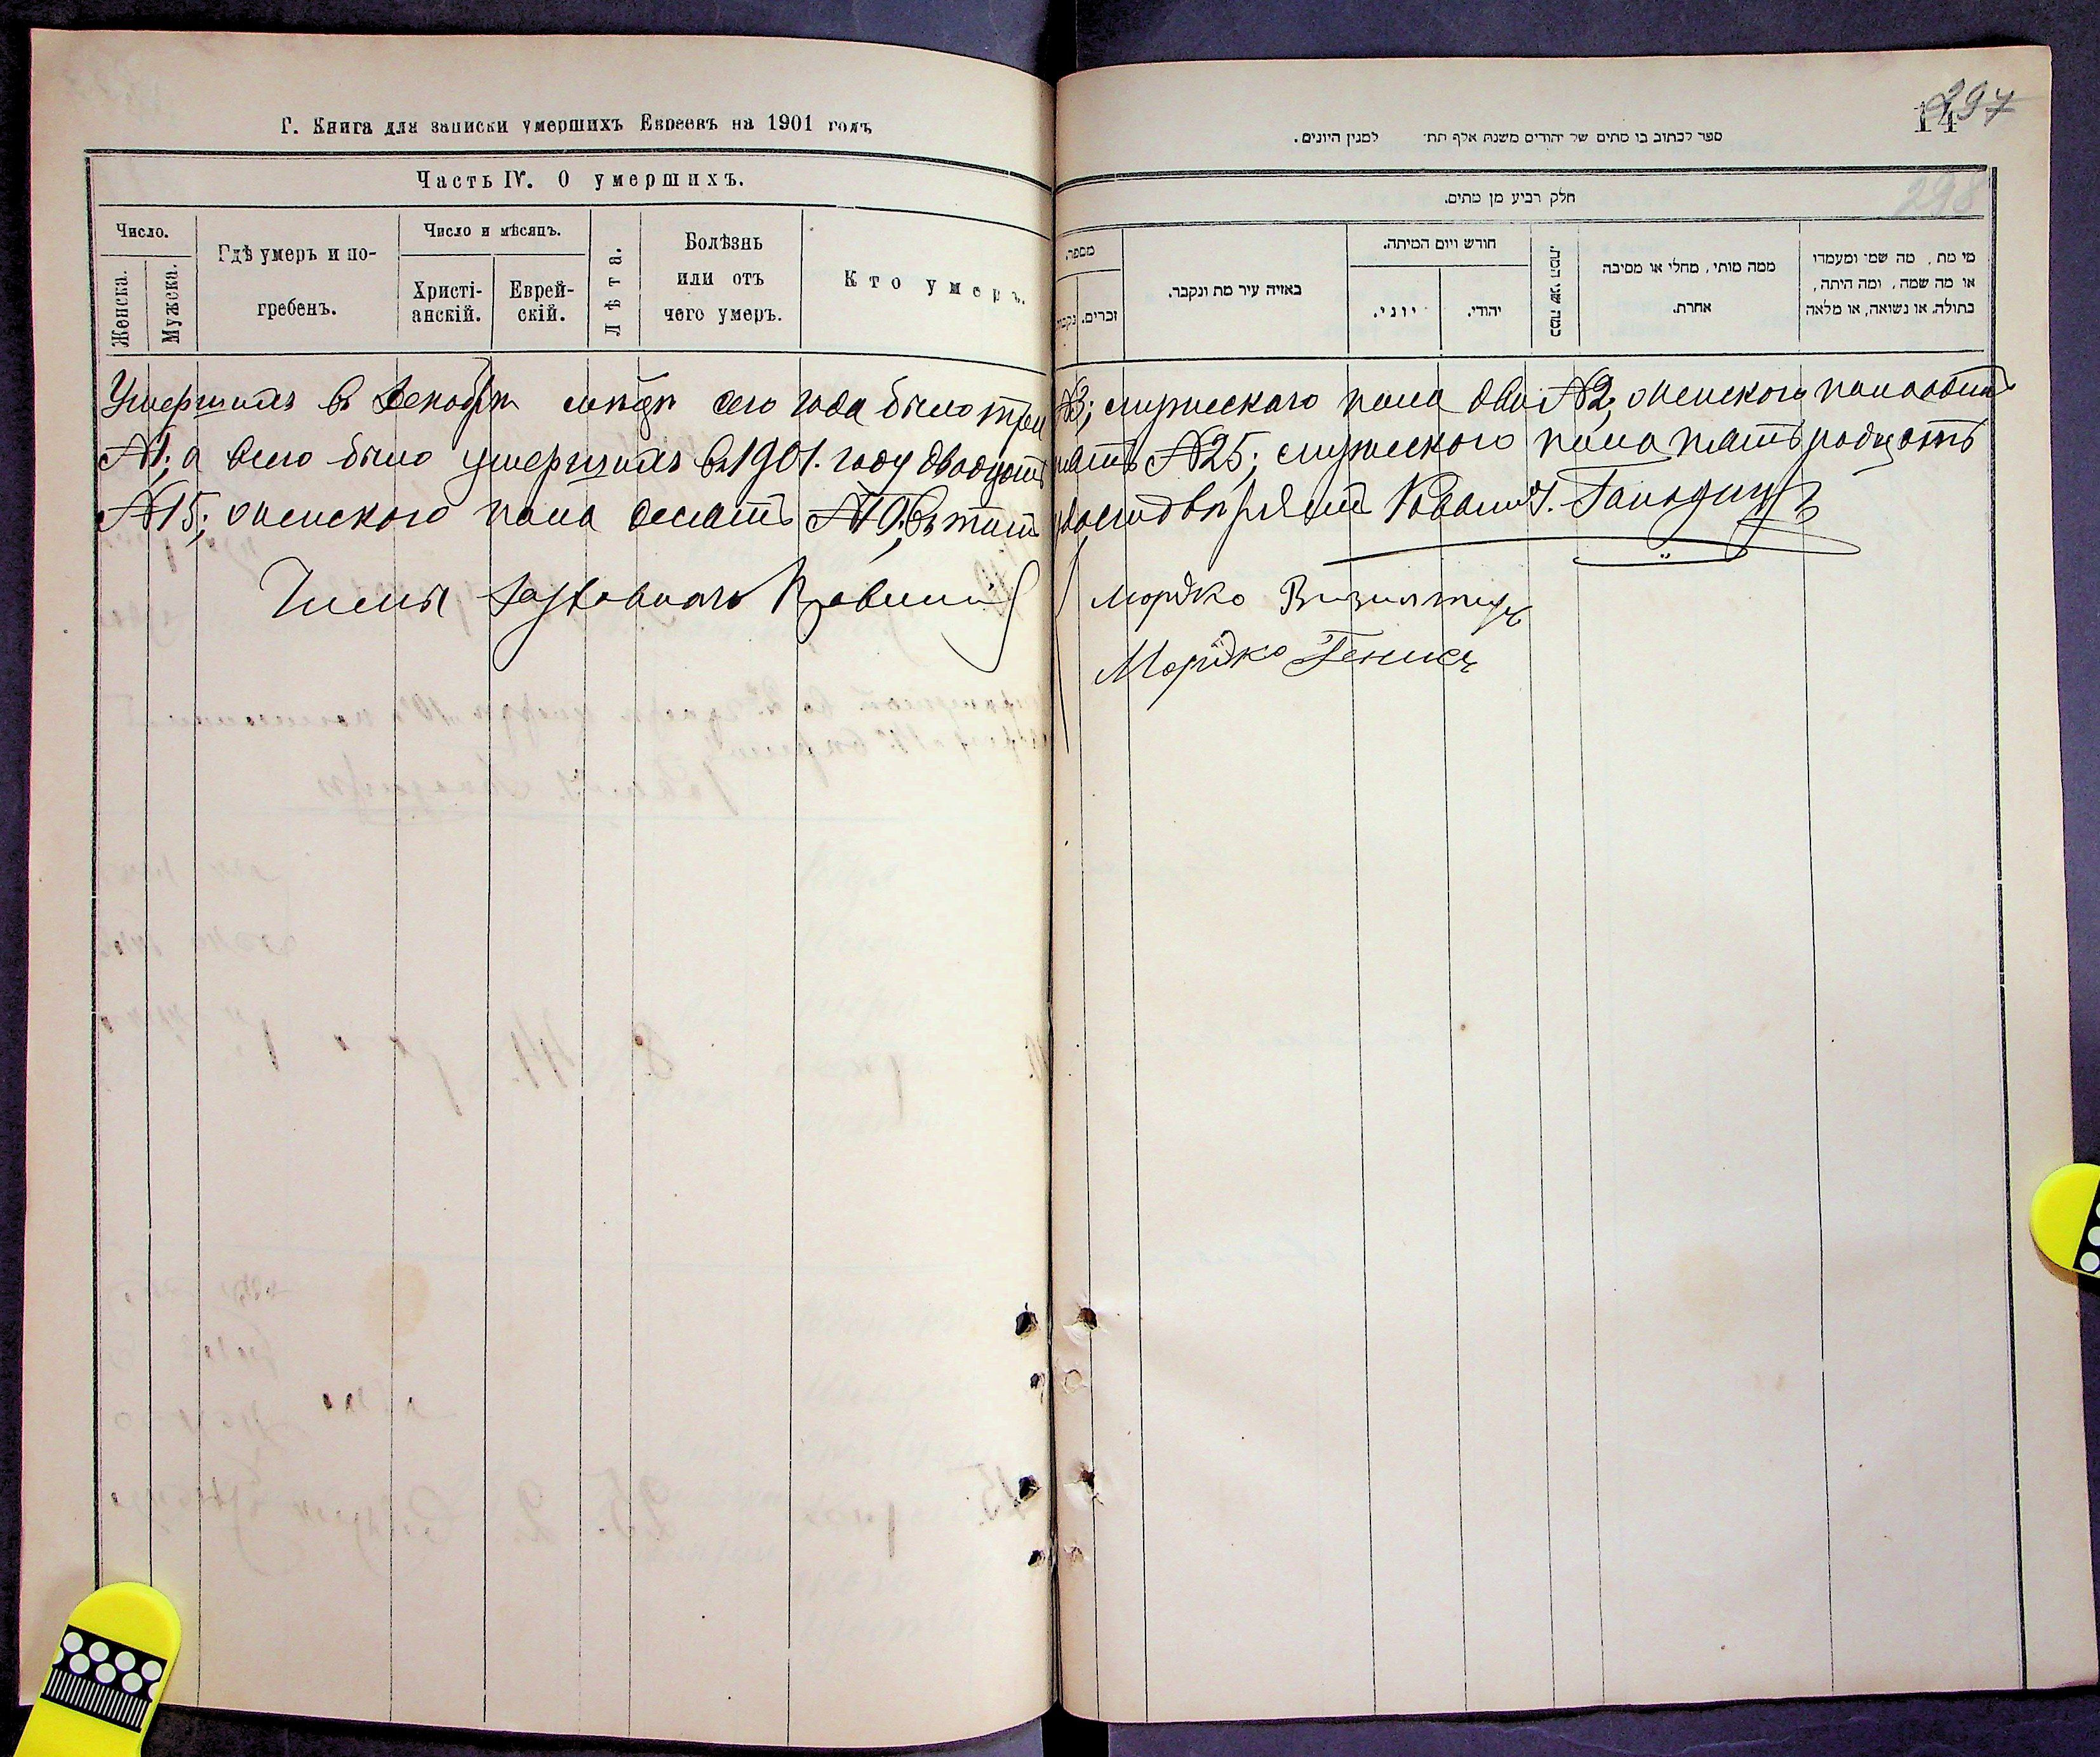 Г. Книга для записки умершихъ Евреевъ на 1901 годъ
Часть IV. О умершихъ.
Число.
Женска.
Мужска.
Гдѣ умеръ и по-
гребенъ.
Число и мѣсяцъ.
Христі-
анскій.
Еврей-
скій.
Лѣта.
Болѣзнь
или отъ
чего умеръ.
Кто умеръ.
14
297
298
ספר לכתוב בו מתים של יהודים משנת אלף תת׳ למנין היונים.
חלק רביע מן מתים.
מספר.
נקבות
זכרים.
באיזה עיר מת ונקבר.
חודש ויום המיתה.
יוני.
יהודי.
כמה שני המת.
ממה מותי, מחלי או מסיבה
אחרת.
מי מת, מה שמו ומעמדו
או מה שמה, ומה היתה,
בתולה, או נשואה, או מלאה
Умершихъ въ Декабрѣ мѣсяцѣ сего года было три №3; мужескаго пола два №2, женскаго пола одинъ
№1; а всего было умершихъ въ 1901. году двадцать пять №25; мужескаго пола пятьнадцать
№15; женскаго пола десять №10, въ томъ Раввинъ
Члены Духовнаго Правленія
Мордко
Мордко Генисъ